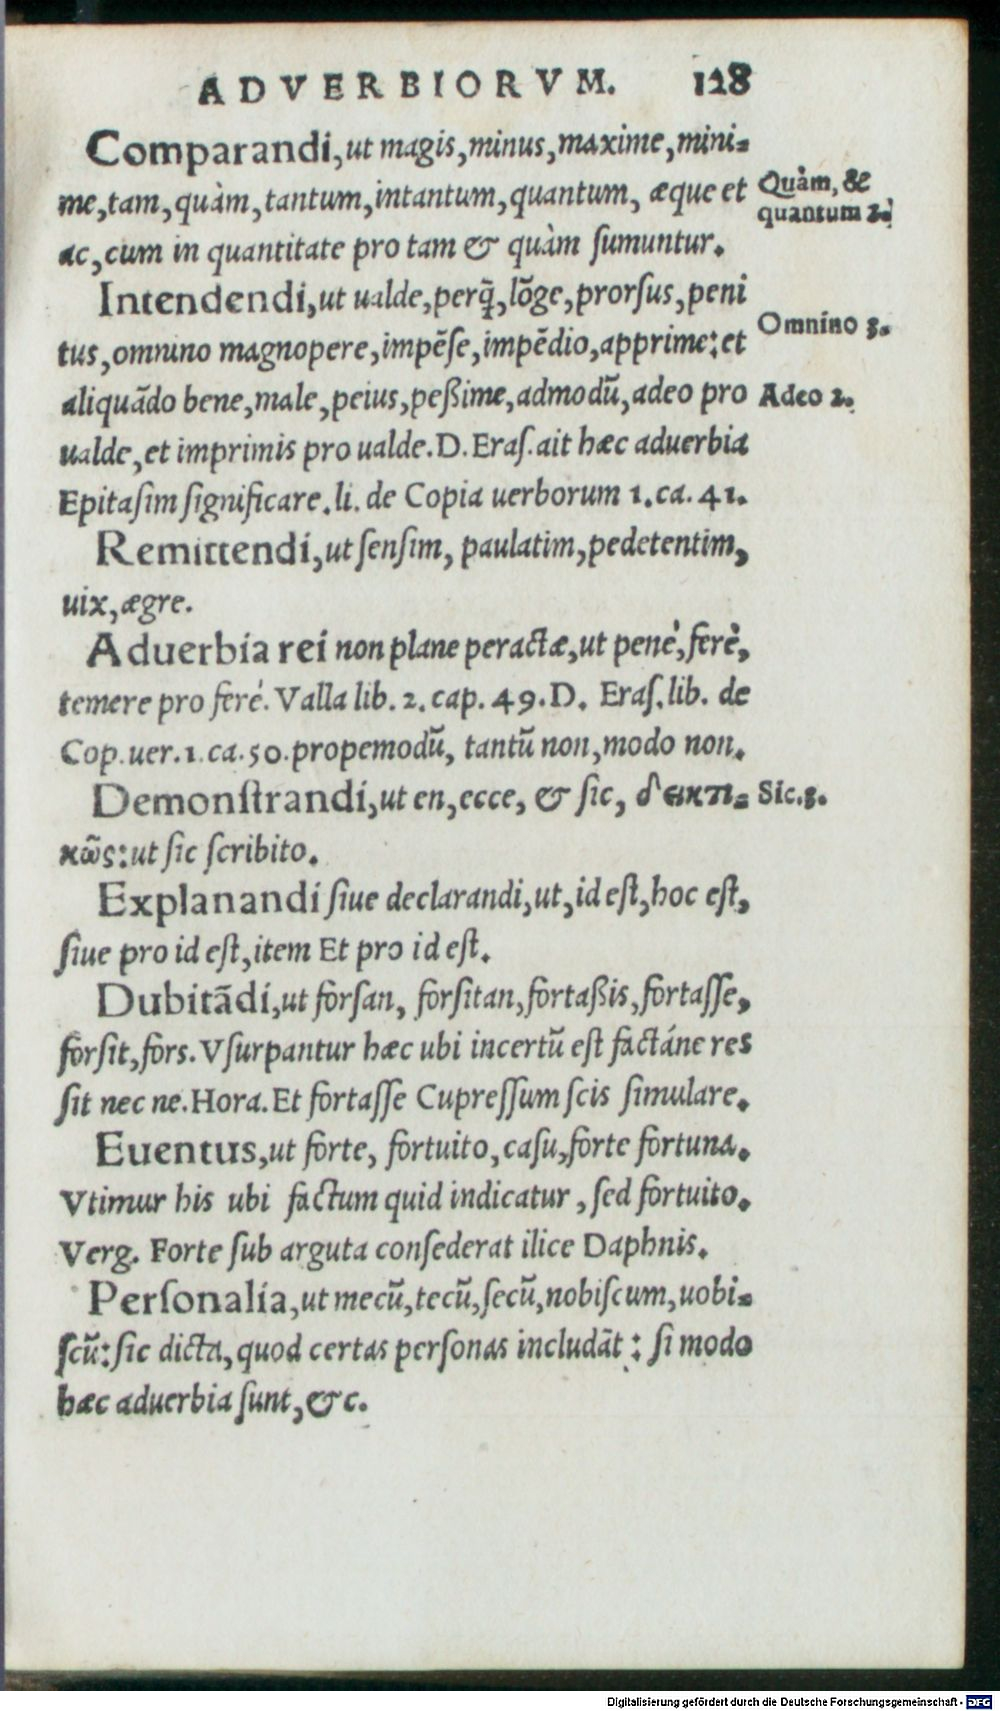 ADVERBIORVM. 128
Comparandi, ut magis, minus, maxime, mini-
me, tam, quàm, tantum, intantum, quantum, æque et
Quàm, &
quantum 2.
ac, cum in quantitate pro tam & quàm ſumuntur.
Intendendi, ut ualde, perq̃, lõge, prorſus, peni
tus, omnino magnopere, impẽſe, impẽdio, apprime: et
Omnino 3.
aliquãdo bene, male, peius, peßime, admodũ, adeo pro
Adeo 2.
ualde, et imprimis pro ualde. D. Eraſ. ait hæc aduerbia
Epitaſim ſignificare. li. de Copia uerborum 1. ca. 41.
Remittendi, ut ſenſim, paulatim, pedetentim,
uix, ægre.
Aduerbia rei non plane peractæ, ut penè, ferè,
temere pro ferè. Valla lib. 2. cap. 49. D. Eraſ. lib. de
Cop. uer. 1. ca. 50. propemodũ, tantũ non, modo non.
Demonſtrandi, ut en, ecce, & ſic, δεικτι-
Sic. 3.
κῶς: ut ſic ſcribito.
Explanandi ſiue declarandi, ut, id eſt, hoc eſt,
ſiue pro id eſt, item Et pro id eſt.
Dubitãdi, ut forſan, forſitan, fortaßis, fortaſſe,
forſit, fors. Vſurpantur hæc ubi incertũ eſt factáne res
ſit nec ne. Hora. Et fortaſſe Cupreſſum ſcis ſimulare.
Euentus, ut forte, fortuito, caſu, forte fortuna.
Vtimur his ubi factum quid indicatur, ſed fortuito.
Verg. Forte ſub arguta conſederat ilice Daphnis.
Perſonalia, ut mecũ, tecũ, ſecũ, nobiſcum, uobi-
ſcũ: ſic dicta, quod certas perſonas includãt: ſi modo
hæc aduerbia ſunt, &c.
Digitalisierung gefördert durch die Deutsche Forschungsgemeinschaft - DFG